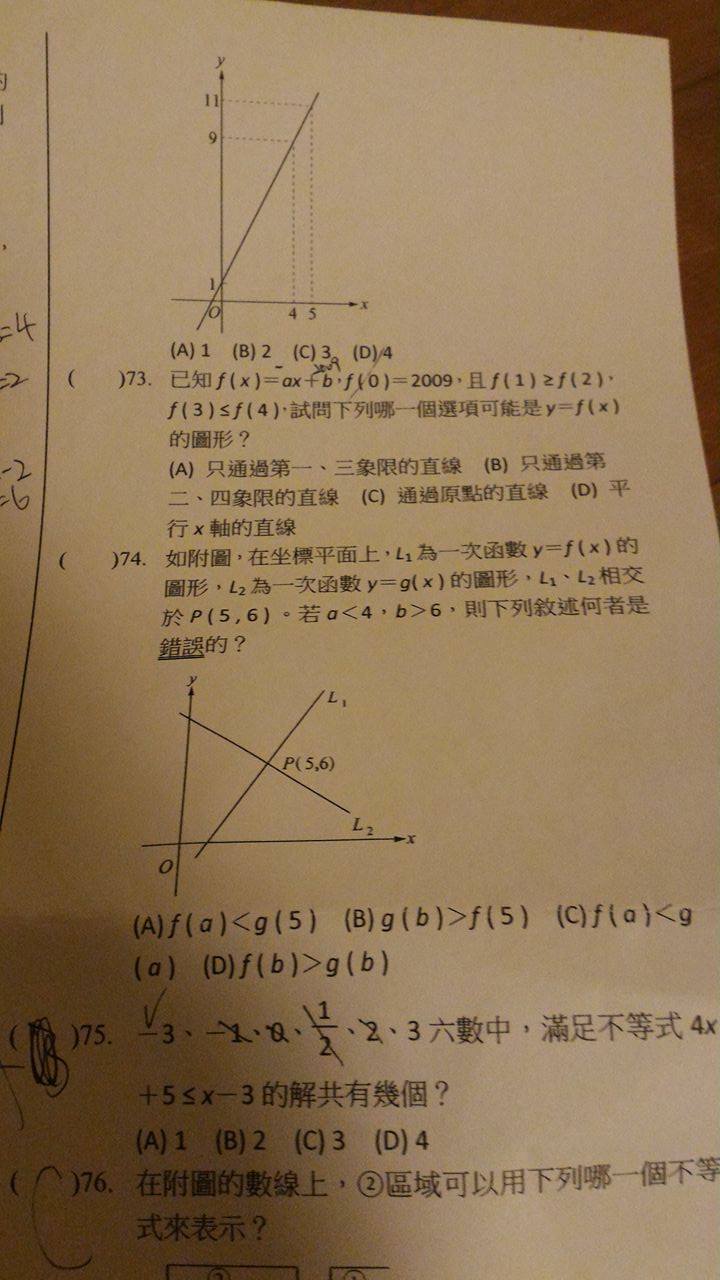 的
=4
=2
-2
=6
y
11
9
1
O
4 5
x
(A) 1 (B) 2 (C) 3 (D) 4
( )73. 已知 f(x)=ax+b,f(0)=2009,且 f(1)≥f(2),
f(3)≤f(4),試問下列哪一個選項可能是 y=f(x)
的圖形?
(A) 只通過第一、三象限的直線 (B) 只通過第
二、四象限的直線 (C) 通過原點的直線 (D) 平
行 x 軸的直線
( )74. 如附圖,在坐標平面上,L₁ 為一次函數 y=f(x) 的
圖形,L₂ 為一次函數 y=g(x) 的圖形,L₁、L₂ 相交
於 P(5,6)。若 a<4,b>6,則下列敘述何者是
錯誤的?
y
L₁
P(5,6)
L₂
x
O
(A) f(a)<g(5) (B) g(b)>f(5) (C) f(a)<g
(a) (D) f(b)>g(b)
( )75. -3、-1、0、1/2、2、3 六數中,滿足不等式 4x
+5≤x-3 的解共有幾個?
(A) 1 (B) 2 (C) 3 (D) 4
( )76. 在附圖的數線上,②區域可以用下列哪一個不等
式來表示?